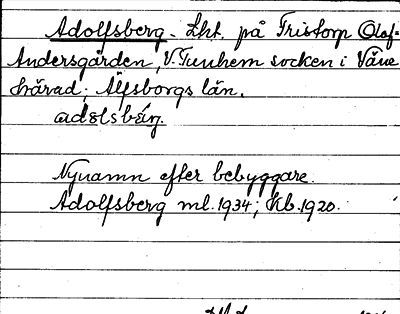 Adolfsberg. Lht. på Tristorp Olof-
Andersgården, V. Tunhem socken i Väne
härad; Älfsborgs län.
adɔlsbéry.
Nynamn efter bebyggare.
Adolfsberg ml. 1934; Kb. 1920.